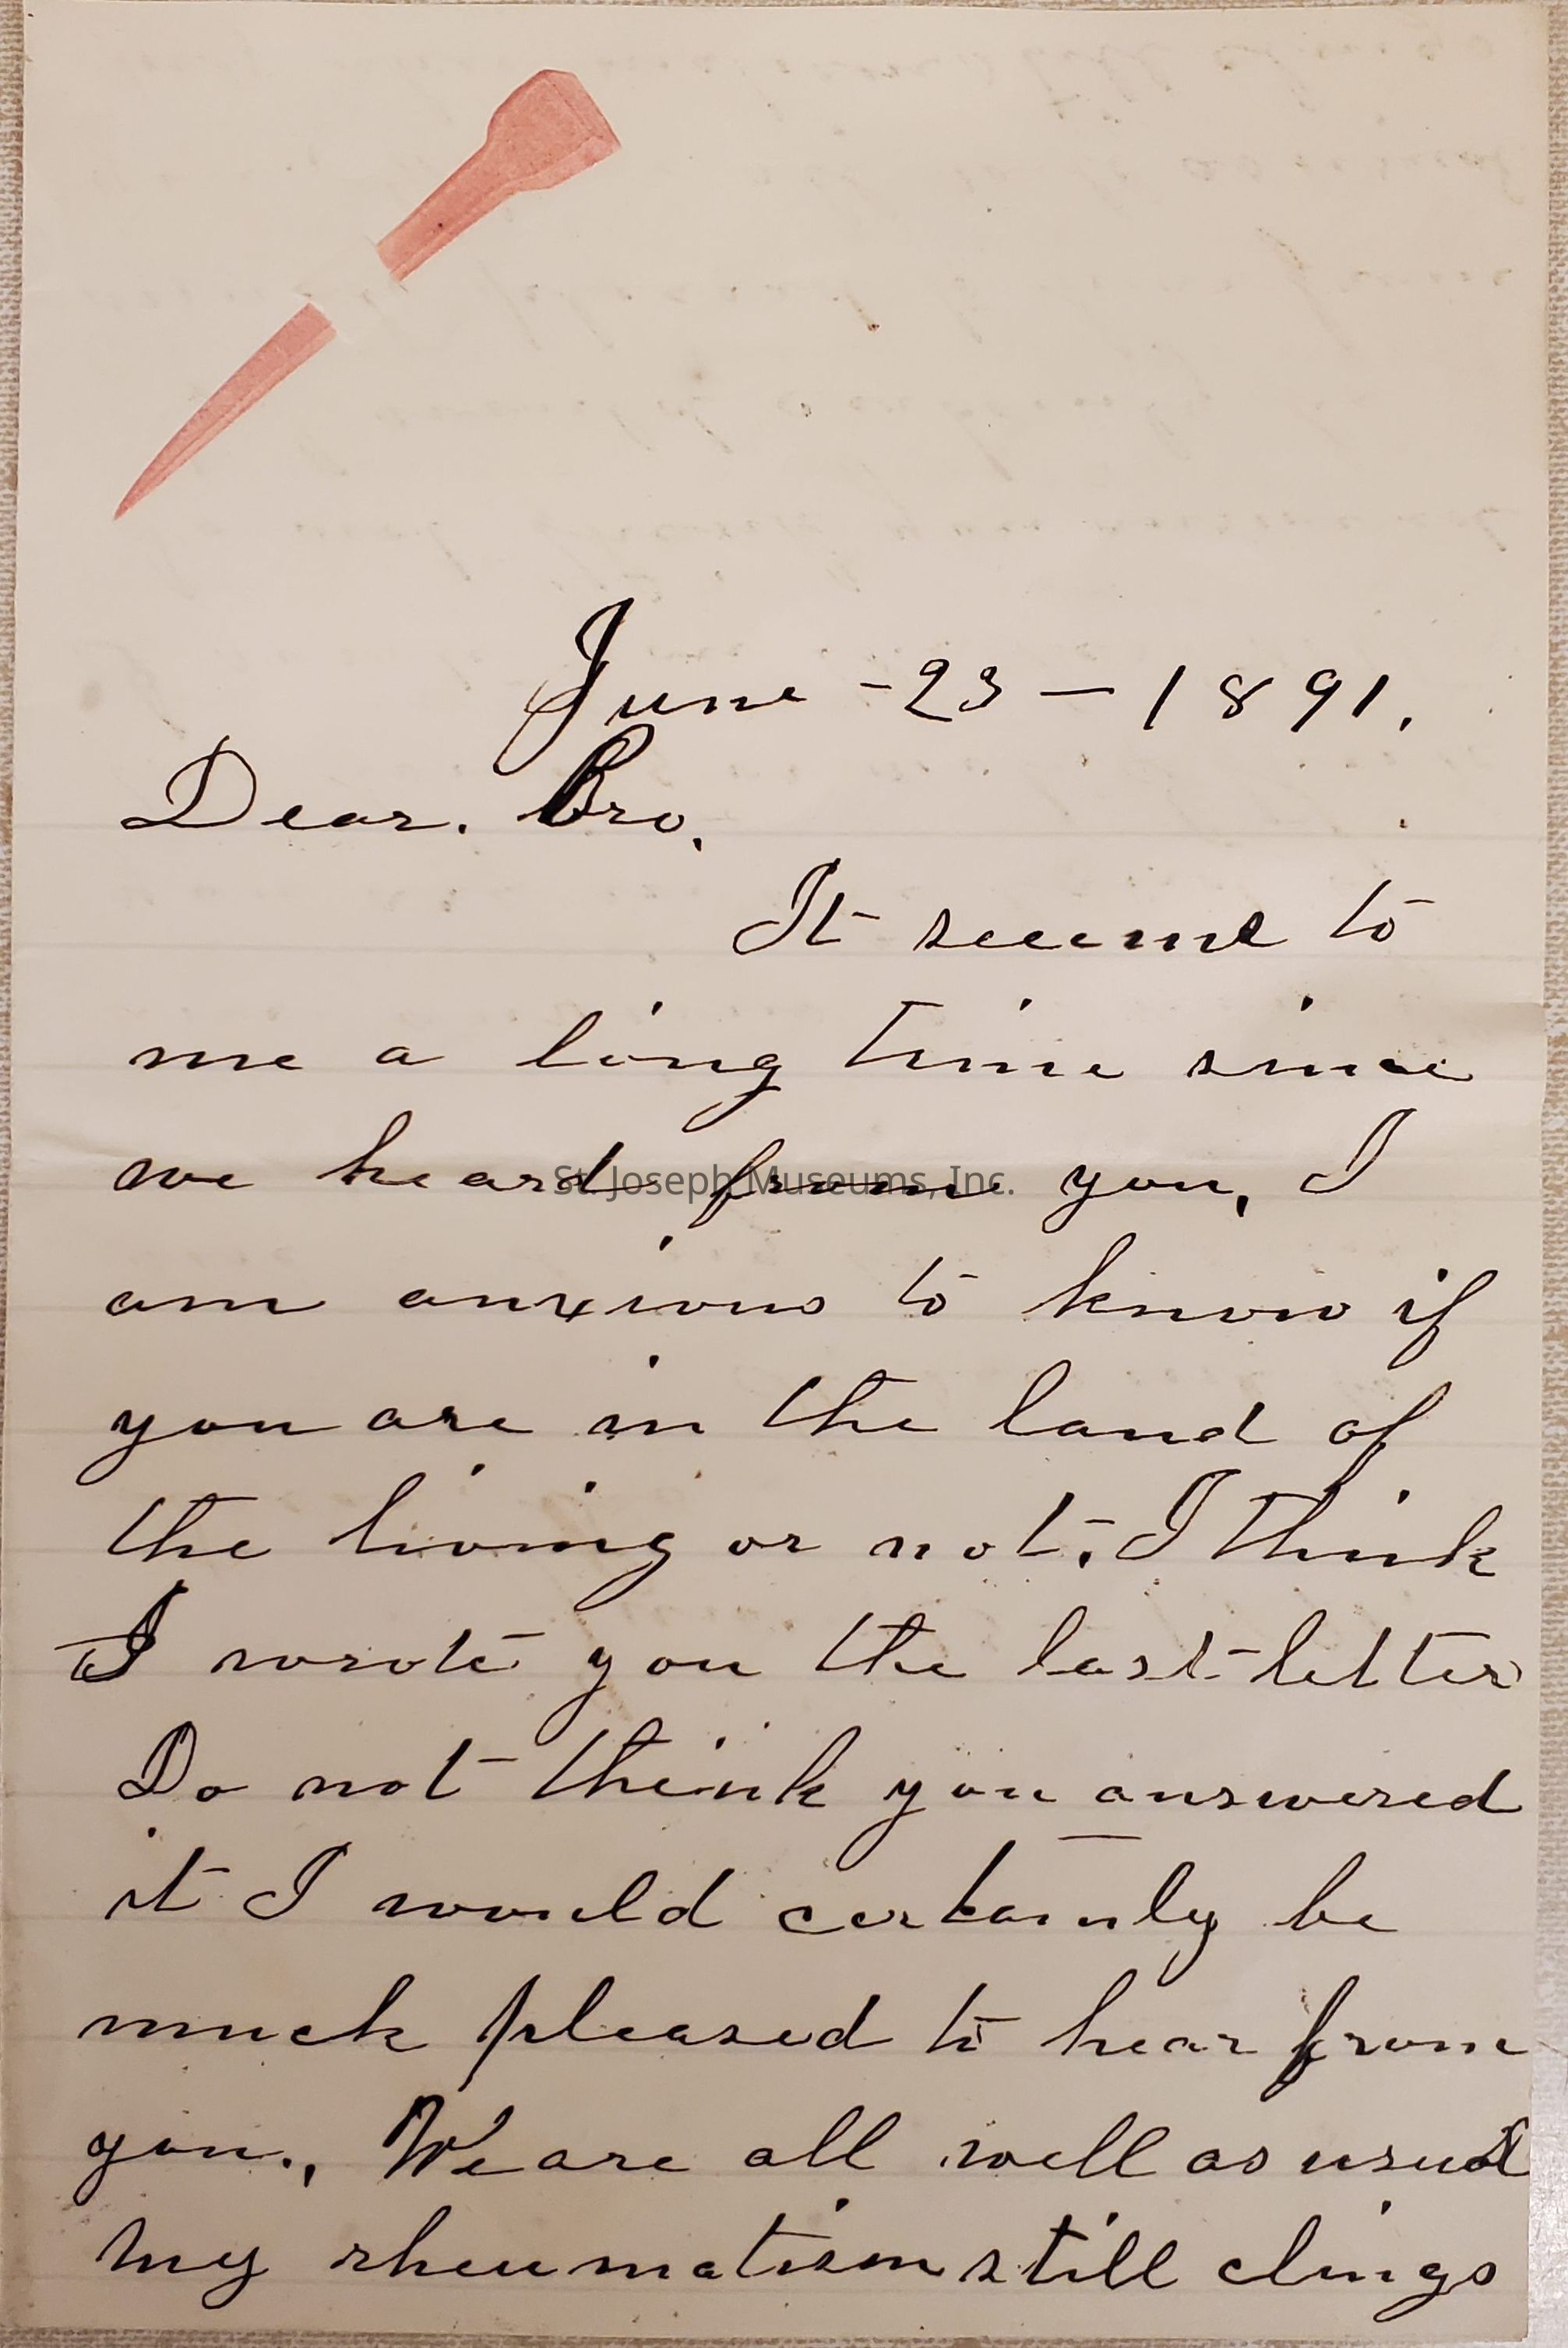 June - 23 - 1891.
Dear. Bro.
It seems to
me a long time since
we heard from you, I
am anxious to know if
you are in the land of
the living or not. I think
I wrote you the last letter
Do not think you answered
it I would certainly be
much pleased to hear from
you., We are all well as usual
my rheumatism still clings
St. Joseph Museums, Inc.